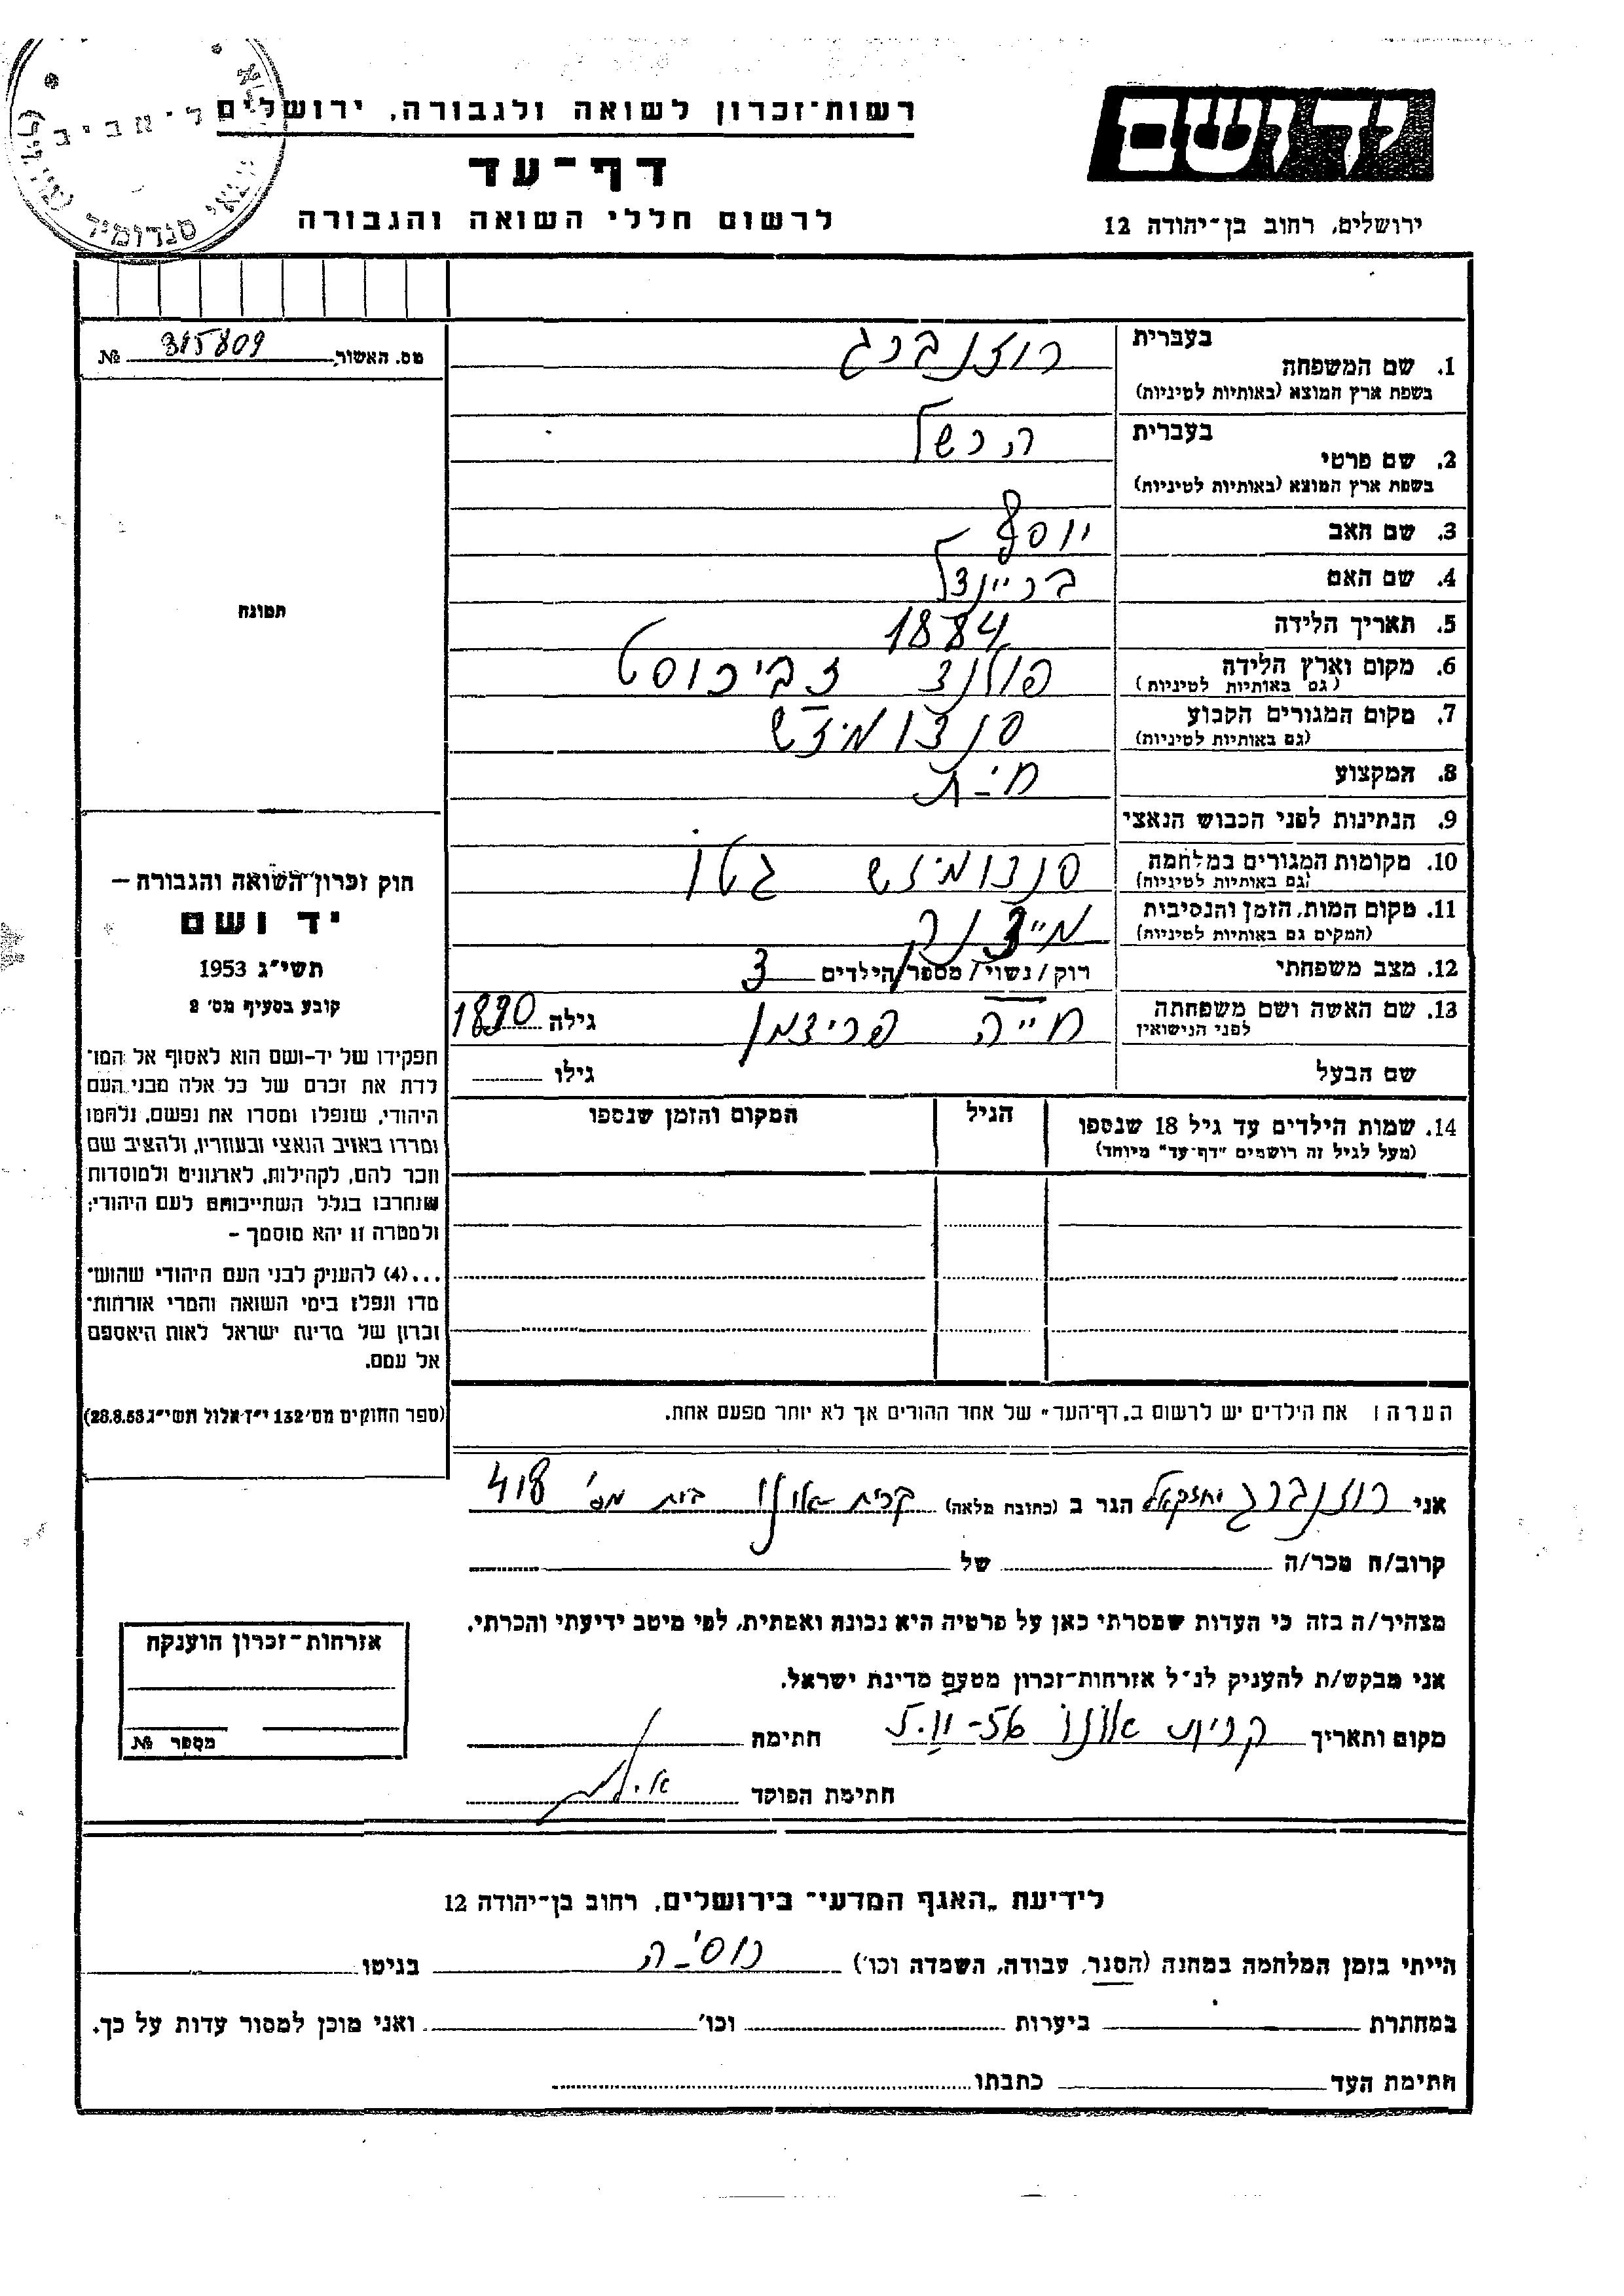 יד ושם
ירושלים, רחוב בן־יהודה 12
רשות־זכרון לשואה ולגבורה, ירושלים
דף־עד
לרשום חללי השואה והגבורה
סנדומיר
מס. האשור № 315809
בעברית
1. שם המשפחה רוזנברג
בשפת ארץ המוצא (באותיות לטיניות)
בעברית
2. שם פרטי הרשל
בשפת ארץ המוצא (באותיות לטיניות)
3. שם האב יוסף
4. שם האם בריינדל
5. תאריך הלידה 1884
6. מקום וארץ הלידה פולנד זביכוסט
(גם באותיות לטיניות)
7. מקום המגורים הקבוע סנדומיזש
(גם באותיות לטיניות)
8. המקצוע חיט
9. הנתינות לפני הכבוש הנאצי
10. מקומות המגורים במלחמה סנדומיזש גטו
(גם באותיות לטיניות)
11. מקום המות, הזמן והנסיבות
(המקים גם באותיות לטיניות)
12. מצב משפחתי רוק/נשוי/מספר הילדים 3
13. שם האשה ושם משפחתה חייה פרידמן גילה 1890
לפני הנישואין
שם הבעל גילו
14. שמות הילדים עד גיל 18 שנספו הגיל המקום והזמן שנספו
(מעל לגיל זה רושמים "דף־עד" מיוחד)
תמונה
חוק זכרון השואה והגבורה –
יד ושם
תשי"ג 1953
קובע בסעיף מס' 2
תפקידו של יד-ושם הוא לאסוף אל המו־
לדת את זכרם של כל אלה מבני העם
היהודי, שנפלו ומסרו את נפשם, נלחמו
ומרדו באויב הנאצי ובעוזריו, ולהציב שם
וזכר להם, לקהילות, לארגונים ולמוסדות
שנחרבו בגלל השתייכותם לעם היהודי;
ולמטרה זו יהא מוסמך –
...(4) להעניק לבני העם היהודי שהוש־
מדו ונפלו בימי השואה והמרי אזרחות־
זכרון של מדינת ישראל לאות היאספם
אל עמם.
(ספר החוקים מס' 132 י"ז אלול תשי"ג 28.8.53)
הערה: את הילדים יש לרשום ב„דף־העד" של אחד ההורים אך לא יותר מפעם אחת.
אני רוזנברג יחזקאל הגר ב (כתובת מלאה) קרית אונו בית מס' 418
קרוב/ה מכר/ה של
מצהיר/ה בזה כי העדות שמסרתי כאן על פרטיה היא נכונה ואמתית, לפי מיטב ידיעתי והכרתי.
אני מבקש/ת להעניק לנ"ל אזרחות־זכרון מטעם מדינת ישראל.
מקום ותאריך קרית אונו חתימה
חתימת הפוקד
אזרחות־זכרון הוענקה
מספר №
לידיעת „האגף המדעי" בירושלים, רחוב בן־יהודה 12
הייתי בזמן המלחמה במחנה (הסגר, עבודה, השמדה וכו') רוסיה בגיטו
במחתרת ביערות וכו' ואני מוכן למסור עדות על כך.
חתימת העד כתבתו